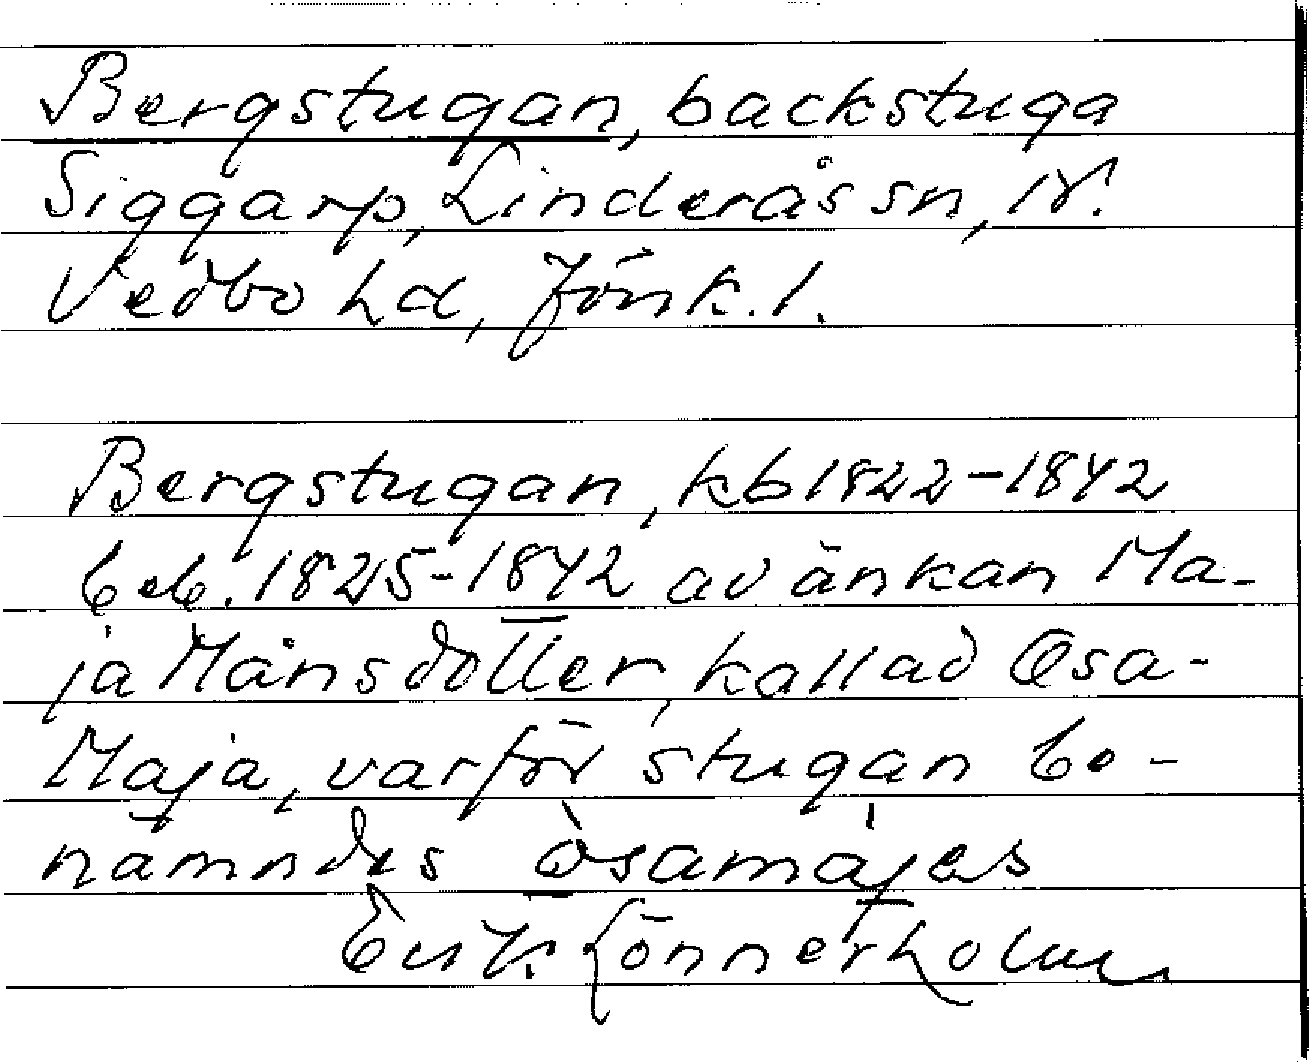 Bergstugan, backstuga
Siggarp, Linderås sn, N.
Vedbo hd, Jönk. l.
Bergstugan, kb 1822-1842
beb. 1825-1842 av änkan Ma-
ja Månsdotter, kallad Osa-
Maja, varför stugan be-
nämndes òsamájes
Erik Lönnerholm